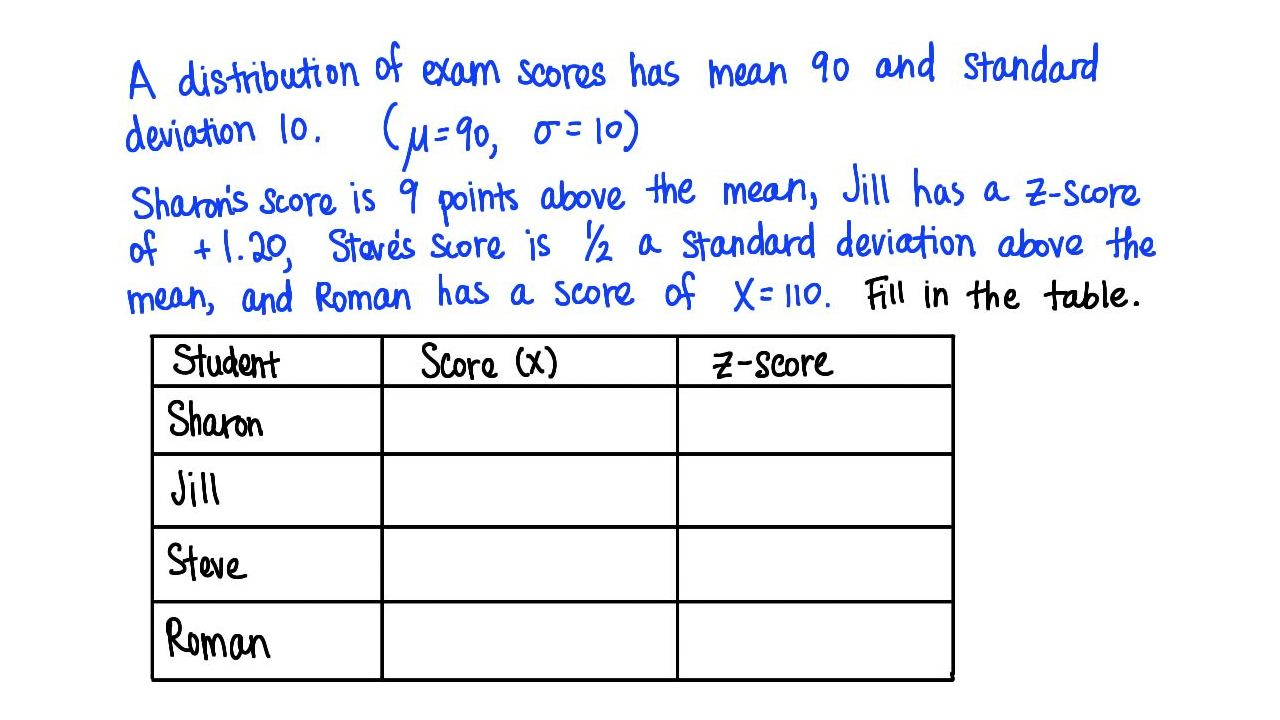 A distribution of exam scores has mean 90 and standard
deviation 10. (μ=90, σ=10)
Sharon's score is 9 points above the mean, Jill has a z-score
of +1.20, Steve's score is 1/2 a standard deviation above the
mean, and Roman has a score of X=110. Fill in the table.
Student Score (X) z-score
Sharon
Jill
Steve
Roman